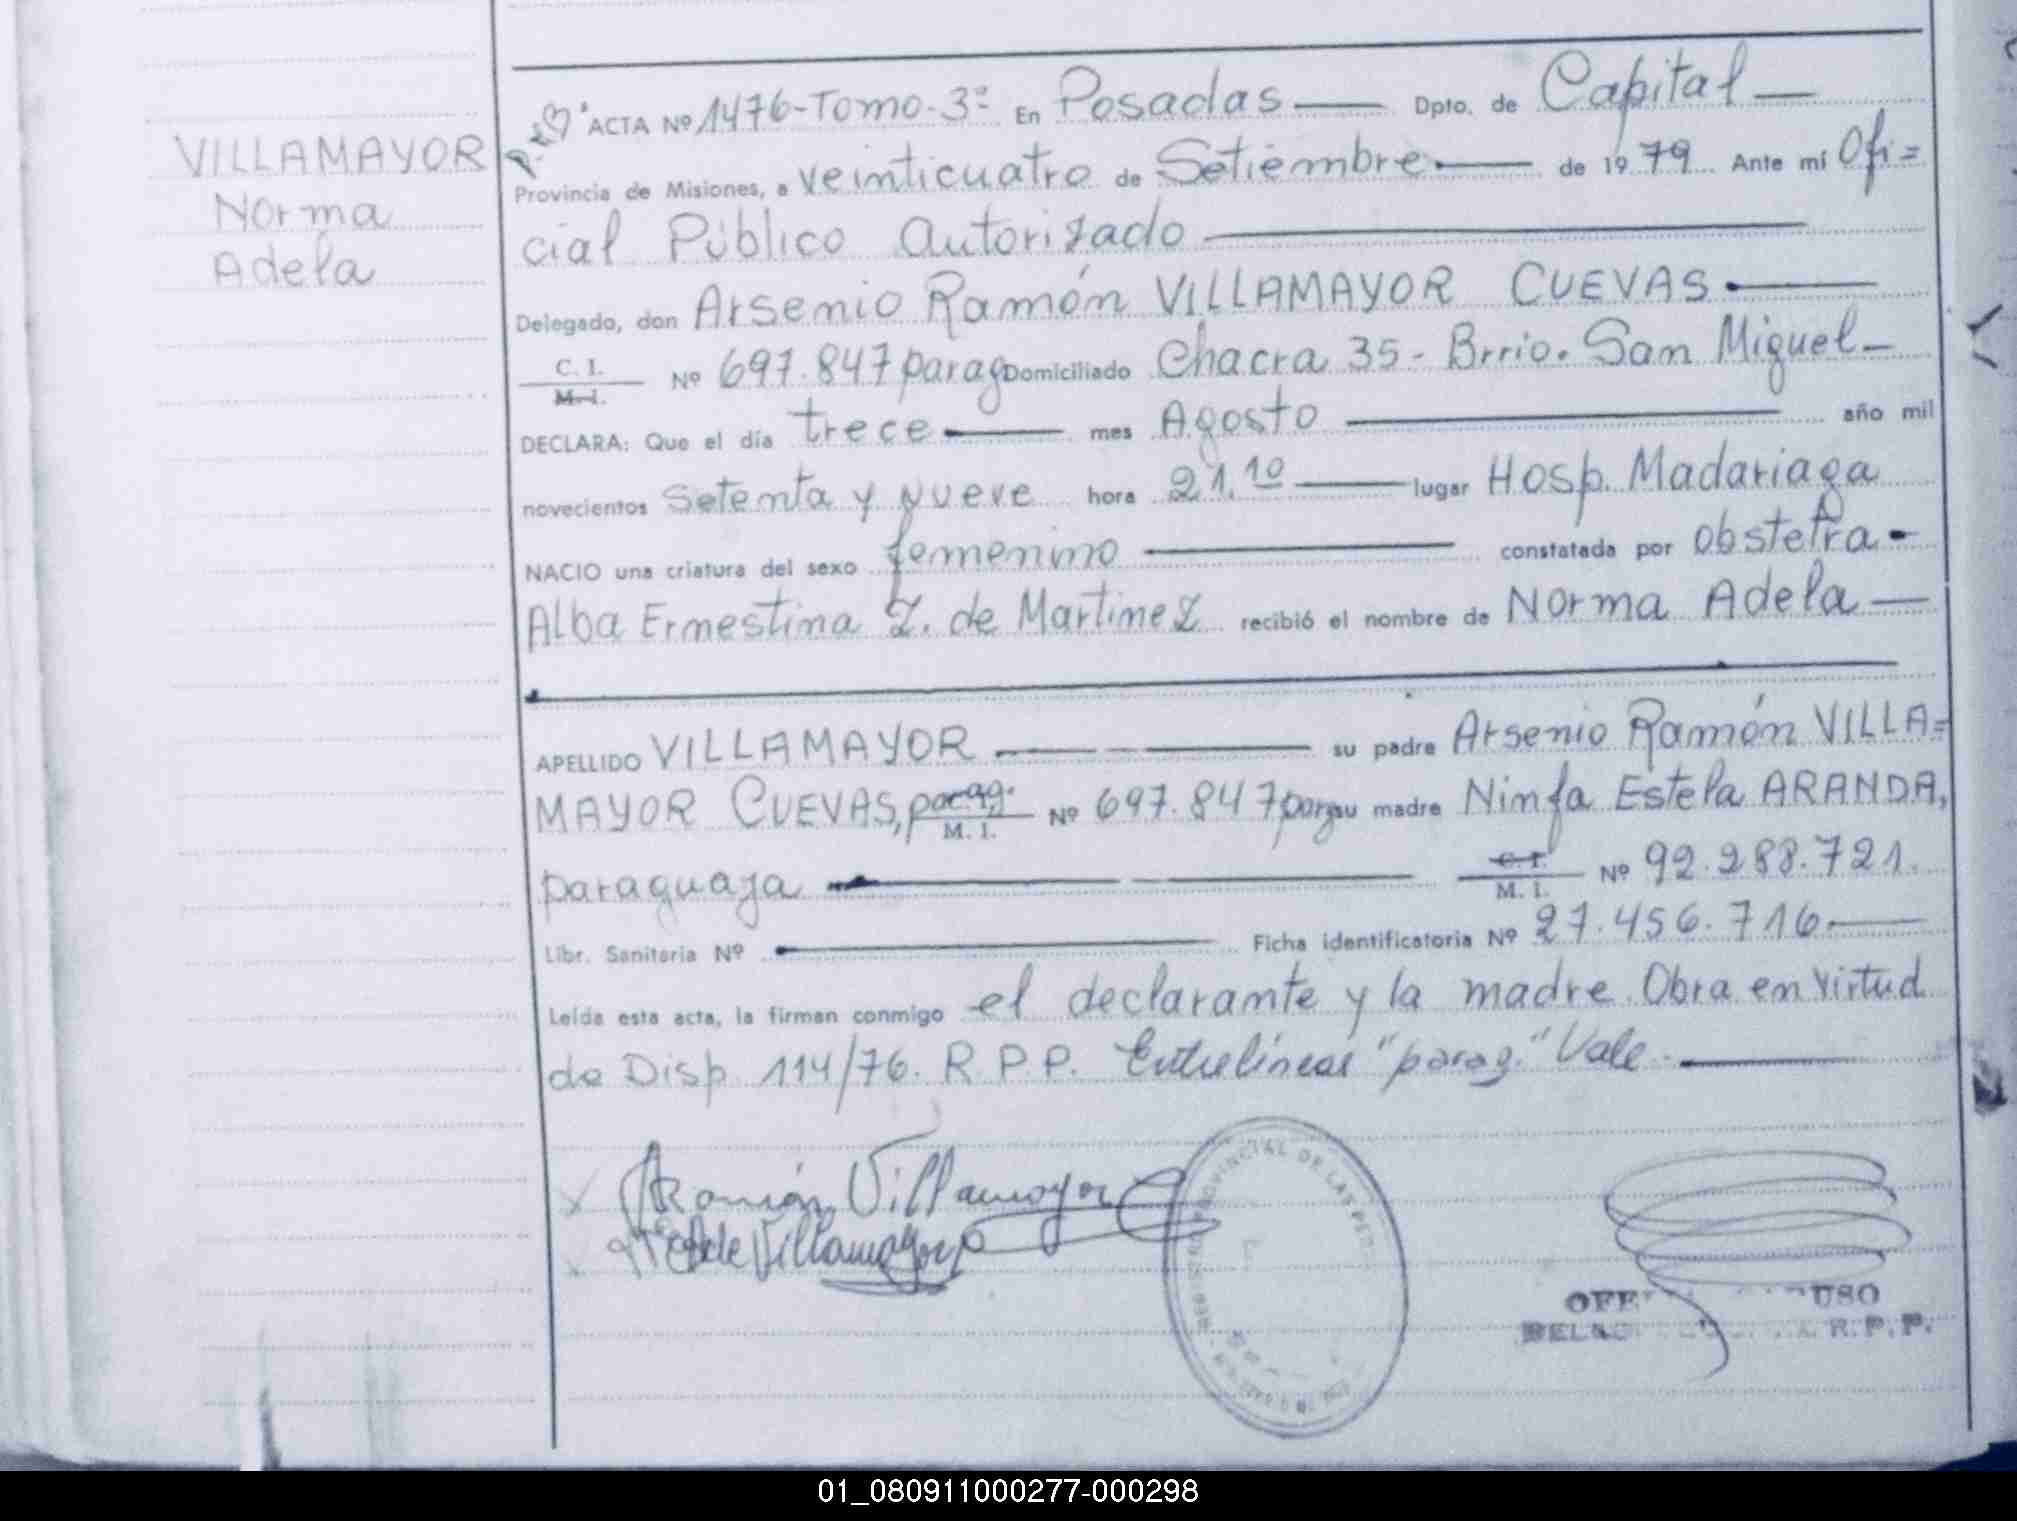 VILLAMAYOR
Norma
Adela
ACTA Nº 1476-Tomo-3º En Posadas — Dpto. de Capital —
Provincia de Misiones, a veinticuatro de Setiembre — de 1979 Ante mí Ofi=
cial Público Autorizado —
Delegado, don Arsenio Ramón VILLAMAYOR CUEVAS —
C. I.
M. I.
Nº 697.847 parag Domiciliado Chacra 35 - Brrio. San Miguel —
DECLARA: Que el día trece — mes Agosto — año mil
novecientos Setenta y Nueve hora 21.10 — lugar Hosp. Madariaga
NACIO una criatura del sexo femenino — constatada por obstetra -
Alba Ernestina Z. de Martinez recibió el nombre de Norma Adela —
APELLIDO VILLAMAYOR — — su padre Arsenio Ramón VILLA=
MAYOR CUEVAS, parag. M. I. Nº 697.847 parg su madre Ninfa Estela ARANDA,
paraguaya — — C. I. M. I. Nº 92.288.721.
Libr. Sanitaria Nº — Ficha identificatoria Nº 27.456.716 —
Leída esta acta, la firman conmigo el declarante y la madre. Obra en virtud
de Disp 114/76. R.P.P. Entrelíneas "parag." Vale —
Ramón Villamayor
de Villamayor
PROVINCIAL DE LAS
R.P.P.
01_080911000277-000298